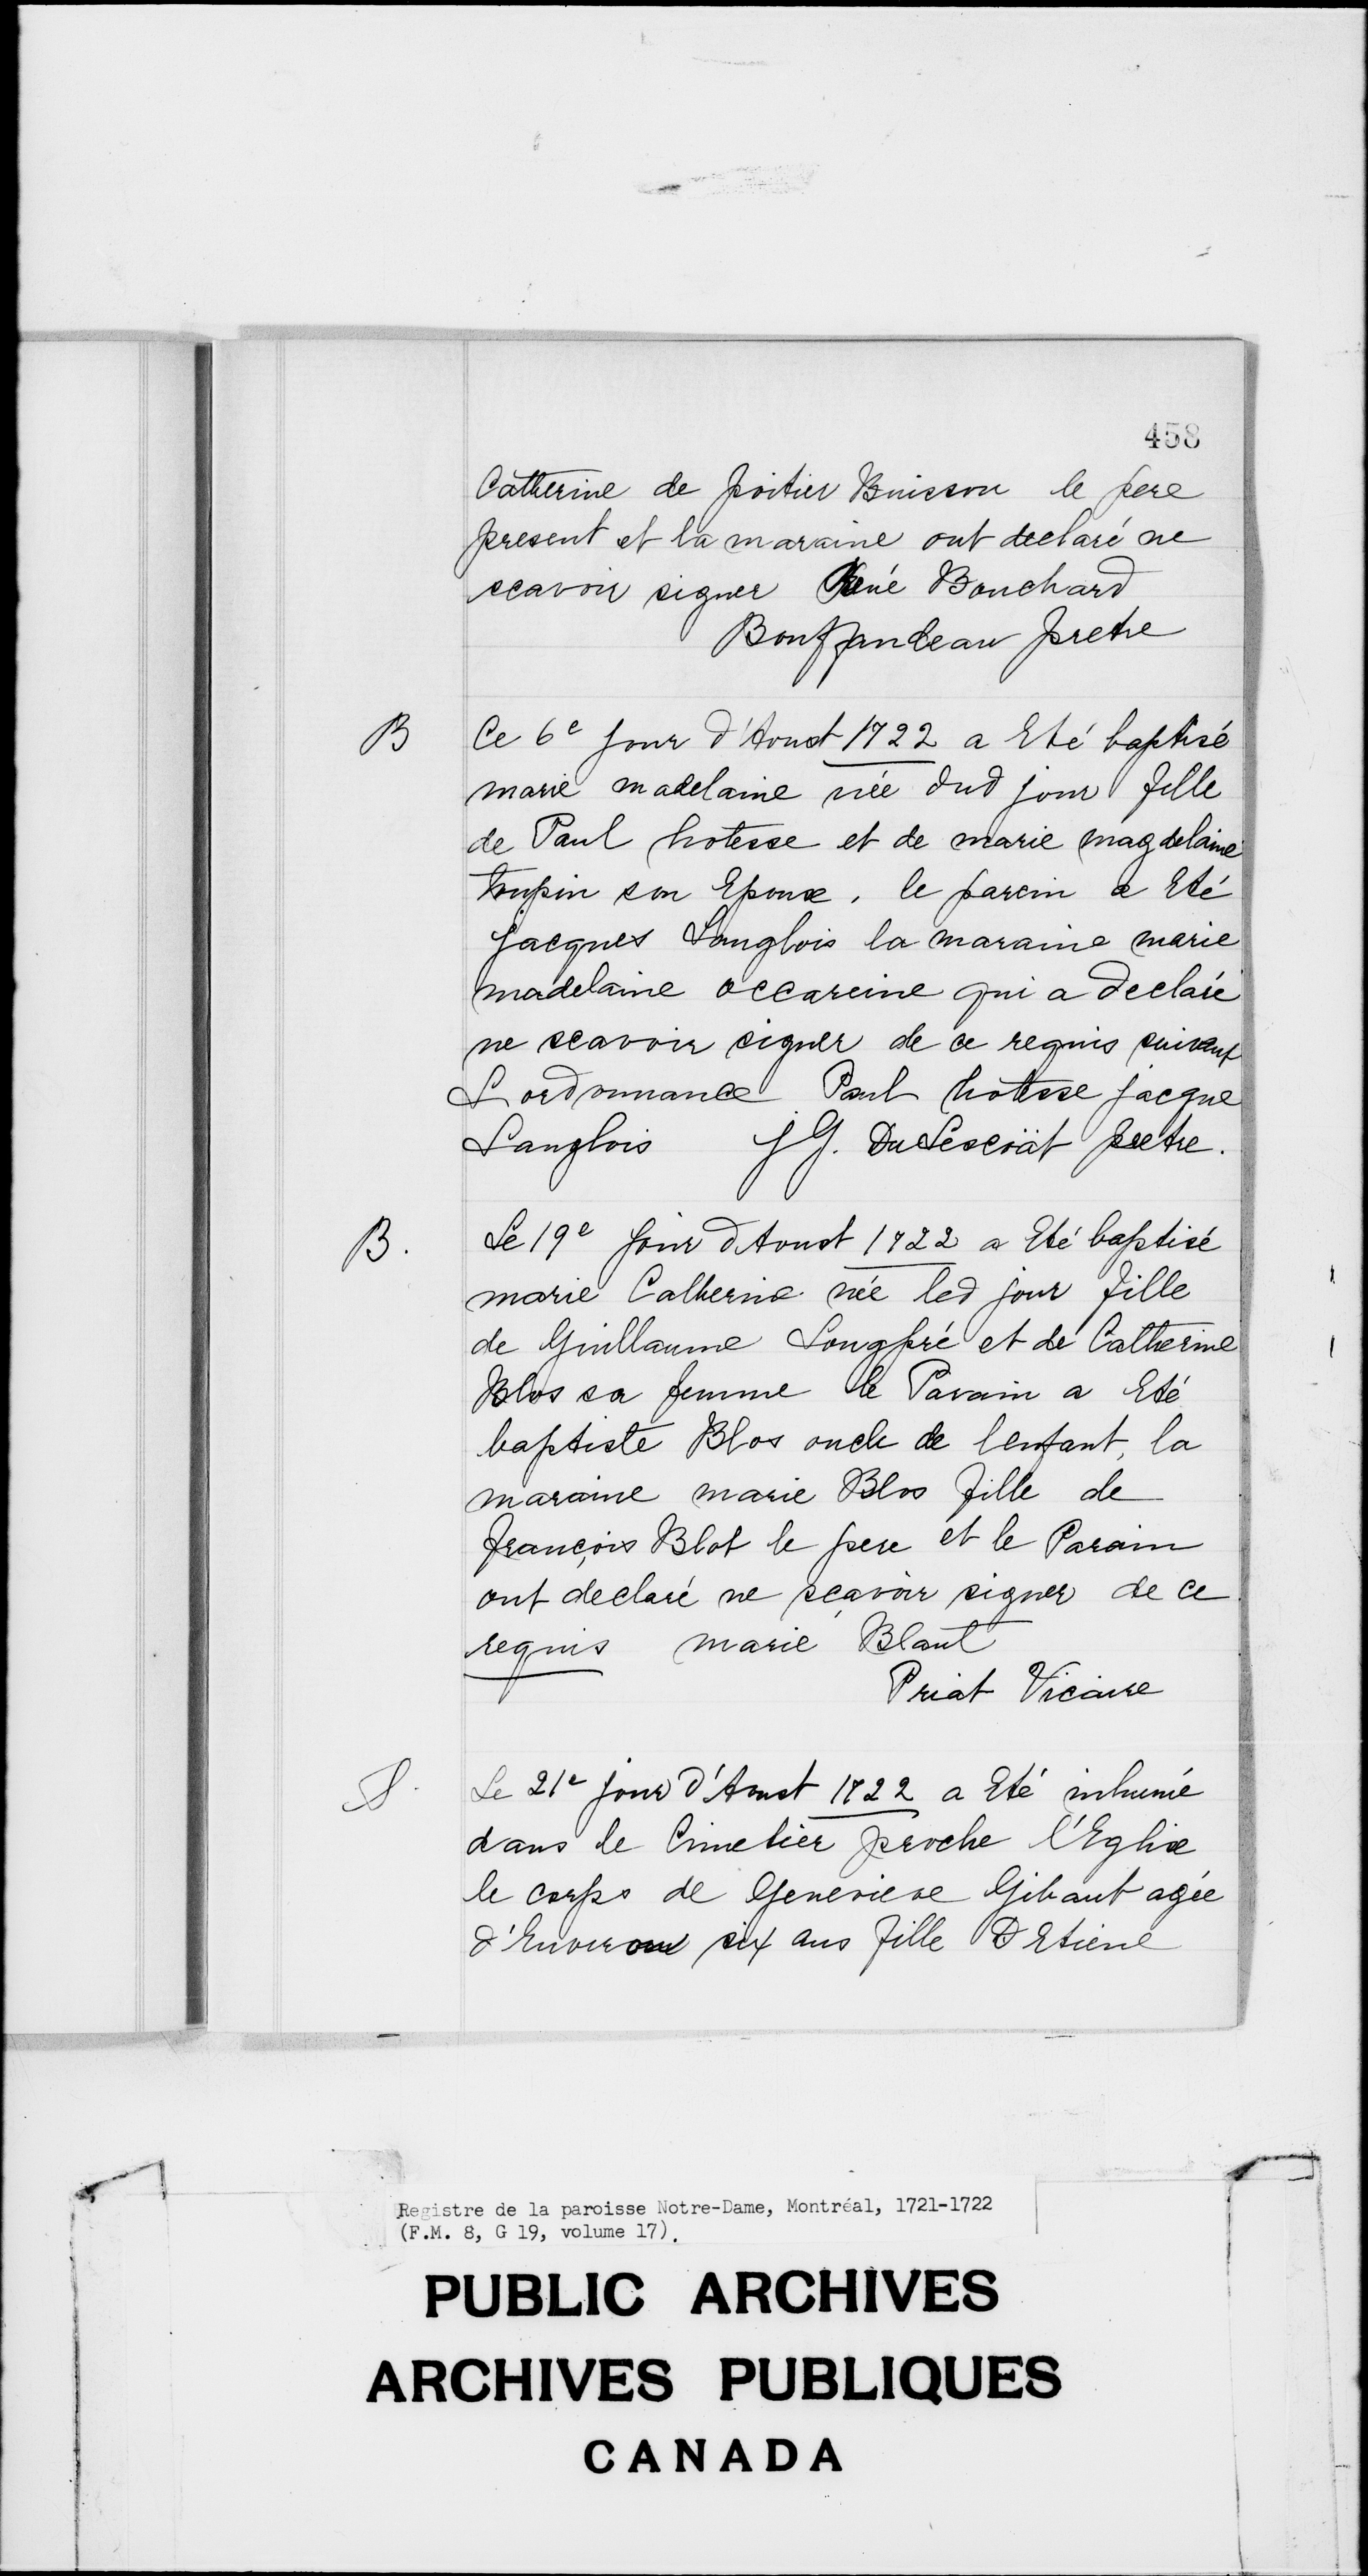 458
Catherine de poitier Buisson le pere
present et la maraine ont declaré ne
scavoir signer René Bouchard
Bouffandeau pretre
B Ce 6e jour d'Aoust 1722 a Eté baptisé
marie madelaine née dud jour fille
de Paul hotesse et de marie magdelaine
toupin son Epouse. le parein a Eté
jacques Langlois la maraine marie
madelaine occareine qui a declaré
ne scavoir signer de ce requis suivant
L ordonnance Paul hotesse jacque
Langlois J G. DuLescöat pretre.
B. Le 19e jour dAoust 1722 a Eté baptisé
marie Catherine née led jour fille
de Guillaume Longpré et de Catherine
Blos sa femme le Parain a Eté
baptiste Blos oncle de lenfant, la
maraine marie Blos fille de
françois Blot le pere et le Parain
ont declaré ne sçavoir signer de ce
requis marie Blaut
Priat Vicaire
S. Le 21e jour d'Aoust 1722 a Eté inhumé
dans le Cimetier proche l'Eglise
le corps de Genevieve Gibaut agée
d'Environ six ans fille D Etiene
Registre de la paroisse Notre-Dame, Montréal, 1721-1722
(F.M. 8, G 19, volume 17).
PUBLIC ARCHIVES
ARCHIVES PUBLIQUES
CANADA